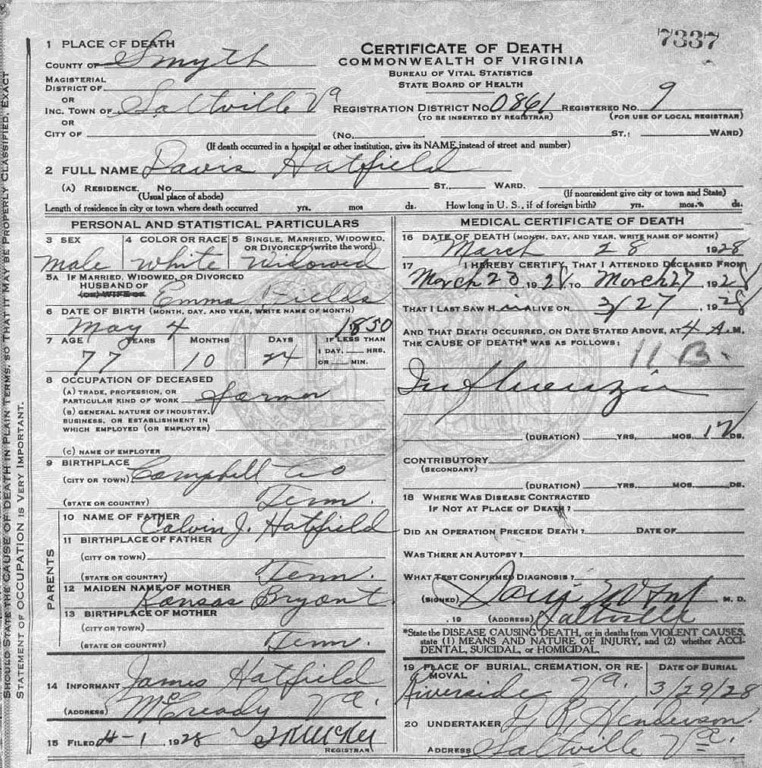 7337
CERTIFICATE OF DEATH
COMMONWEALTH OF VIRGINIA
BUREAU OF VITAL STATISTICS
STATE BOARD OF HEALTH
1 PLACE OF DEATH
COUNTY OF Smyth
MAGISTERIAL
DISTRICT OF
OR
INC. TOWN OF Saltville Va
REGISTRATION DISTRICT No. 0861 REGISTERED No. 9
(TO BE INSERTED BY REGISTRAR) (FOR USE OF LOCAL REGISTRAR)
OR
CITY OF (No. ST.: WARD)
(If death occurred in a hospital or other institution, give its NAME instead of street and number)
2 FULL NAME Davis Hatfield
(A) RESIDENCE. No. ST., WARD.
(Usual place of abode) (If nonresident give city or town and State)
Length of residence in city or town where death occurred yrs. mos ds. How long in U. S., if of foreign birth? yrs. mos. ds.
PERSONAL AND STATISTICAL PARTICULARS
3 SEX 4 COLOR OR RACE 5 SINGLE, MARRIED, WIDOWED,
OR DIVORCED (write the word)
Male White Widowed
5A IF MARRIED, WIDOWED, OR DIVORCED
HUSBAND OF
(OR) WIFE OF Emma Fields
6 DATE OF BIRTH (MONTH, DAY, AND YEAR, WRITE NAME OF MONTH)
May 4 1850
7 AGE YEARS MONTHS DAYS IF LESS THAN
1 DAY, HRS.
OR MIN.
77 10 24
8 OCCUPATION OF DECEASED
(A) TRADE, PROFESSION, OR
PARTICULAR KIND OF WORK farmer
(B) GENERAL NATURE OF INDUSTRY,
BUSINESS, OR ESTABLISHMENT IN
WHICH EMPLOYED (OR EMPLOYER)
(C) NAME OF EMPLOYER
9 BIRTHPLACE
(CITY OR TOWN) Campbell Co
(STATE OR COUNTRY) Tenn.
PARENTS
10 NAME OF FATHER
Calvin J. Hatfield
11 BIRTHPLACE OF FATHER
(CITY OR TOWN)
(STATE OR COUNTRY) Tenn.
12 MAIDEN NAME OF MOTHER
Kansas Bryont
13 BIRTHPLACE OF MOTHER
(CITY OR TOWN)
(STATE OR COUNTRY) Tenn.
14 INFORMANT James Hatfield
(ADDRESS) McCready Va.
15 FILED 4-1, 1928
REGISTRAR
MEDICAL CERTIFICATE OF DEATH
16 DATE OF DEATH (MONTH, DAY, AND YEAR, WRITE NAME OF MONTH)
March 28 1928
17 I HEREBY CERTIFY, THAT I ATTENDED DECEASED FROM
March 20 1928 TO March 27, 1928
THAT I LAST SAW HIM ALIVE ON 3/27, 1928
AND THAT DEATH OCCURRED, ON DATE STATED ABOVE, AT 4 A.M.
THE CAUSE OF DEATH* WAS AS FOLLOWS:
11 B.
Influenzia
(DURATION) YRS. MOS. 12 DS.
CONTRIBUTORY
(SECONDARY)
(DURATION) YRS. MOS. DS.
18 WHERE WAS DISEASE CONTRACTED
IF NOT AT PLACE OF DEATH?
DID AN OPERATION PRECEDE DEATH? DATE OF
WAS THERE AN AUTOPSY?
WHAT TEST CONFIRMED DIAGNOSIS?
(SIGNED) M. D.
, 19 (ADDRESS) Saltville
*State the DISEASE CAUSING DEATH, or in deaths from VIOLENT CAUSES,
state (1) MEANS AND NATURE OF INJURY, and (2) whether ACCI-
DENTAL, SUICIDAL, or HOMICIDAL.
19 PLACE OF BURIAL, CREMATION, OR RE-
MOVAL DATE OF BURIAL
Riverside Va. 3/29/28
20 UNDERTAKER R Henderson.
ADDRESS Saltville Va.
SHOULD STATE THE CAUSE OF DEATH IN PLAIN TERMS, SO THAT IT MAY BE PROPERLY CLASSIFIED. EXACT
STATEMENT OF OCCUPATION IS VERY IMPORTANT.